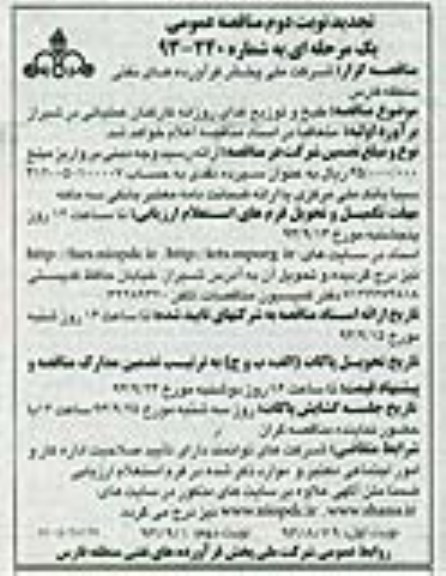 تجدید نوبت دوم مناقصه عمومی
یک مرحله ای به شماره ۲۴۰-۹۳
مناقصه گزار: شرکت ملی پخش فرآورده های نفتی
منطقه فارس
موضوع مناقصه: طبخ و توزیع غذای روزانه کارکنان عملیاتی در شیراز
برآورد اولیه: متعاقبا در اسناد مناقصه اعلام خواهد شد
نوع و مبلغ تضمین شرکت در مناقصه: ارائه رسید وجه مبنی بر واریز مبلغ
ریال به عنوان سپرده نقدی به حساب
سیبا بانک ملی مرکزی یا ارائه ضمانت نامه معتبر بانکی سه ماهه
مهلت تکمیل و تحویل فرم های استعلام ارزیابی: تا ساعت ۱۴ روز
پنجشنبه مورخ ۹۳/۹/۱۳
اسناد در سایت های http://iets.mporg.ir http://fars.niopdc.ir
نیز درج گردیده و تحویل آن به آدرس شیراز خیابان حافظ
دفتر کمیسیون مناقصات تلفن
تاریخ ارائه اسناد مناقصه به شرکتهای تایید شده: تا ساعت ۱۴ روز شنبه
مورخ ۹۳/۹/۱۵
تاریخ تحویل پاکات (الف ب و ج) به ترتیب تضمین مدارک مناقصه و
پیشنهاد قیمت: تا ساعت ۱۴ روز دوشنبه مورخ ۹۳/۹/۲۴
تاریخ جلسه گشایش پاکات: روز سه شنبه مورخ ۹۳/۹/۲۵ ساعت با
حضور نماینده مناقصه گران
شرایط متقاضی: شرکت های توانمند دارای تأیید صلاحیت اداره کار و
امور اجتماعی معتبر و موارد ذکر شده در فرم استعلام ارزیابی
ضمنا متن آگهی علاوه بر سایت های مذکور در سایت های
www.shana.ir www.niopdc.ir نیز درج می گردد
نوبت اول: ۹۳/۸/۲۹ نوبت دوم: ۹۳/۹/۱
روابط عمومی شرکت ملی پخش فرآورده های نفتی منطقه فارس